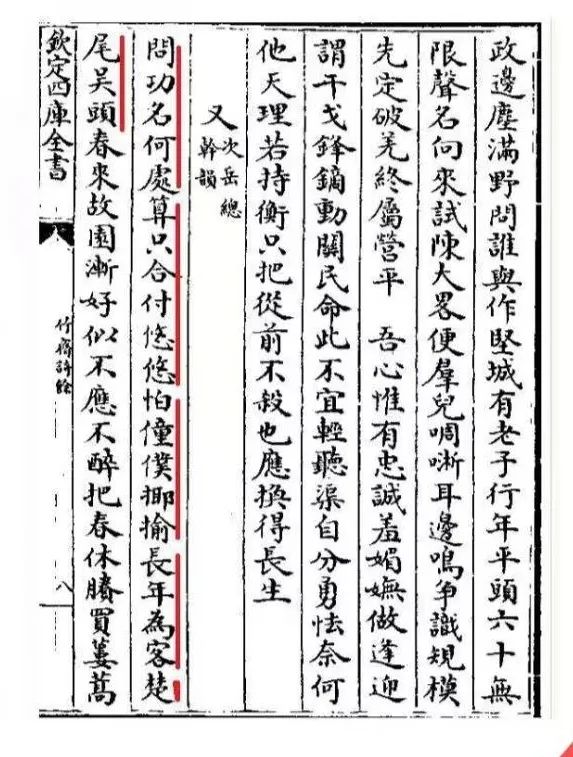 政邊塵滿野問誰與作堅城有老子行年平頭六十無
限聲名向來試陳大畧便羣兒啁哳耳邊鳴爭識規模
先定破羌終屬營平　吾心惟有忠誠羞媚嫵做逢迎
謂干戈鋒鏑動關民命此不宜輕聽渠自分勇怯奈何
他天理若持衡只把從前不殺也應換得長生
又次岳總
幹韻
問功名何處算只合付悠悠怕僮僕揶揄長年為客楚
尾吴頭春來故園漸好似不應不醉把春休賸買蔞蒿
欽定四庫全書
竹齋詩餘
八